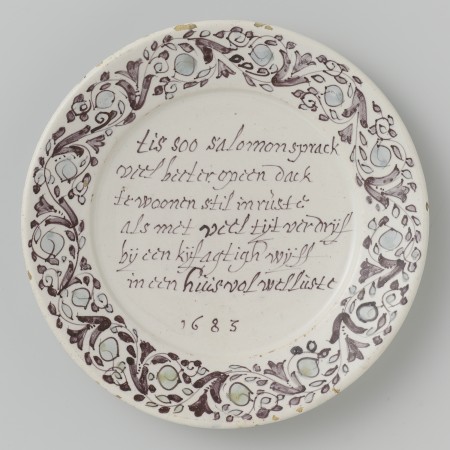 BDD
tis soo salomon sprack
veel beeter op een dack
te woonen stil in rùste
als met veel tijt verdrijf
bij een kijfagtigh wijff
in een huis vol wellùste
1685